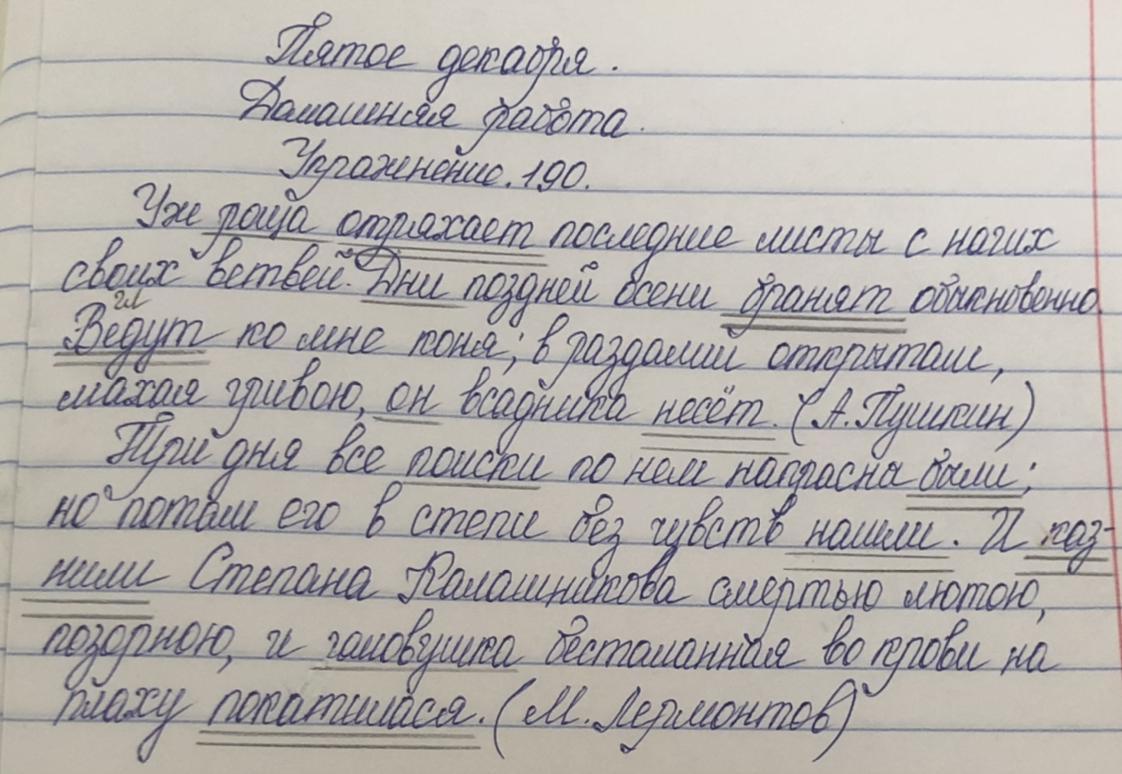 Пятое декабря.
Домашняя работа.
Упражнение. 190.
Уже роща отряхает последние листы с нагих
своих ветвей. Дни поздней осени бранят обыкновенно.
гл
Ведут ко мне коня; в раздолии открытом,
махая гривою, он всадника несёт. (А. Пушкин)
Три дня все поиски по нем напрасны были;
но потом его в степи без чувств нашли. И каз-
нили Степана Калашникова смертью лютою,
позорною, и головушка бесталанная во крови на
плаху покатилася. (М. Лермонтов)